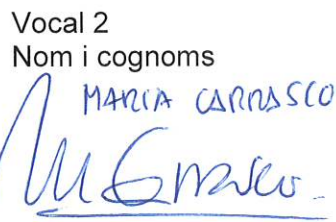 Vocal 2
Nom i cognoms
MARIA CARRASCO
M Carrasco